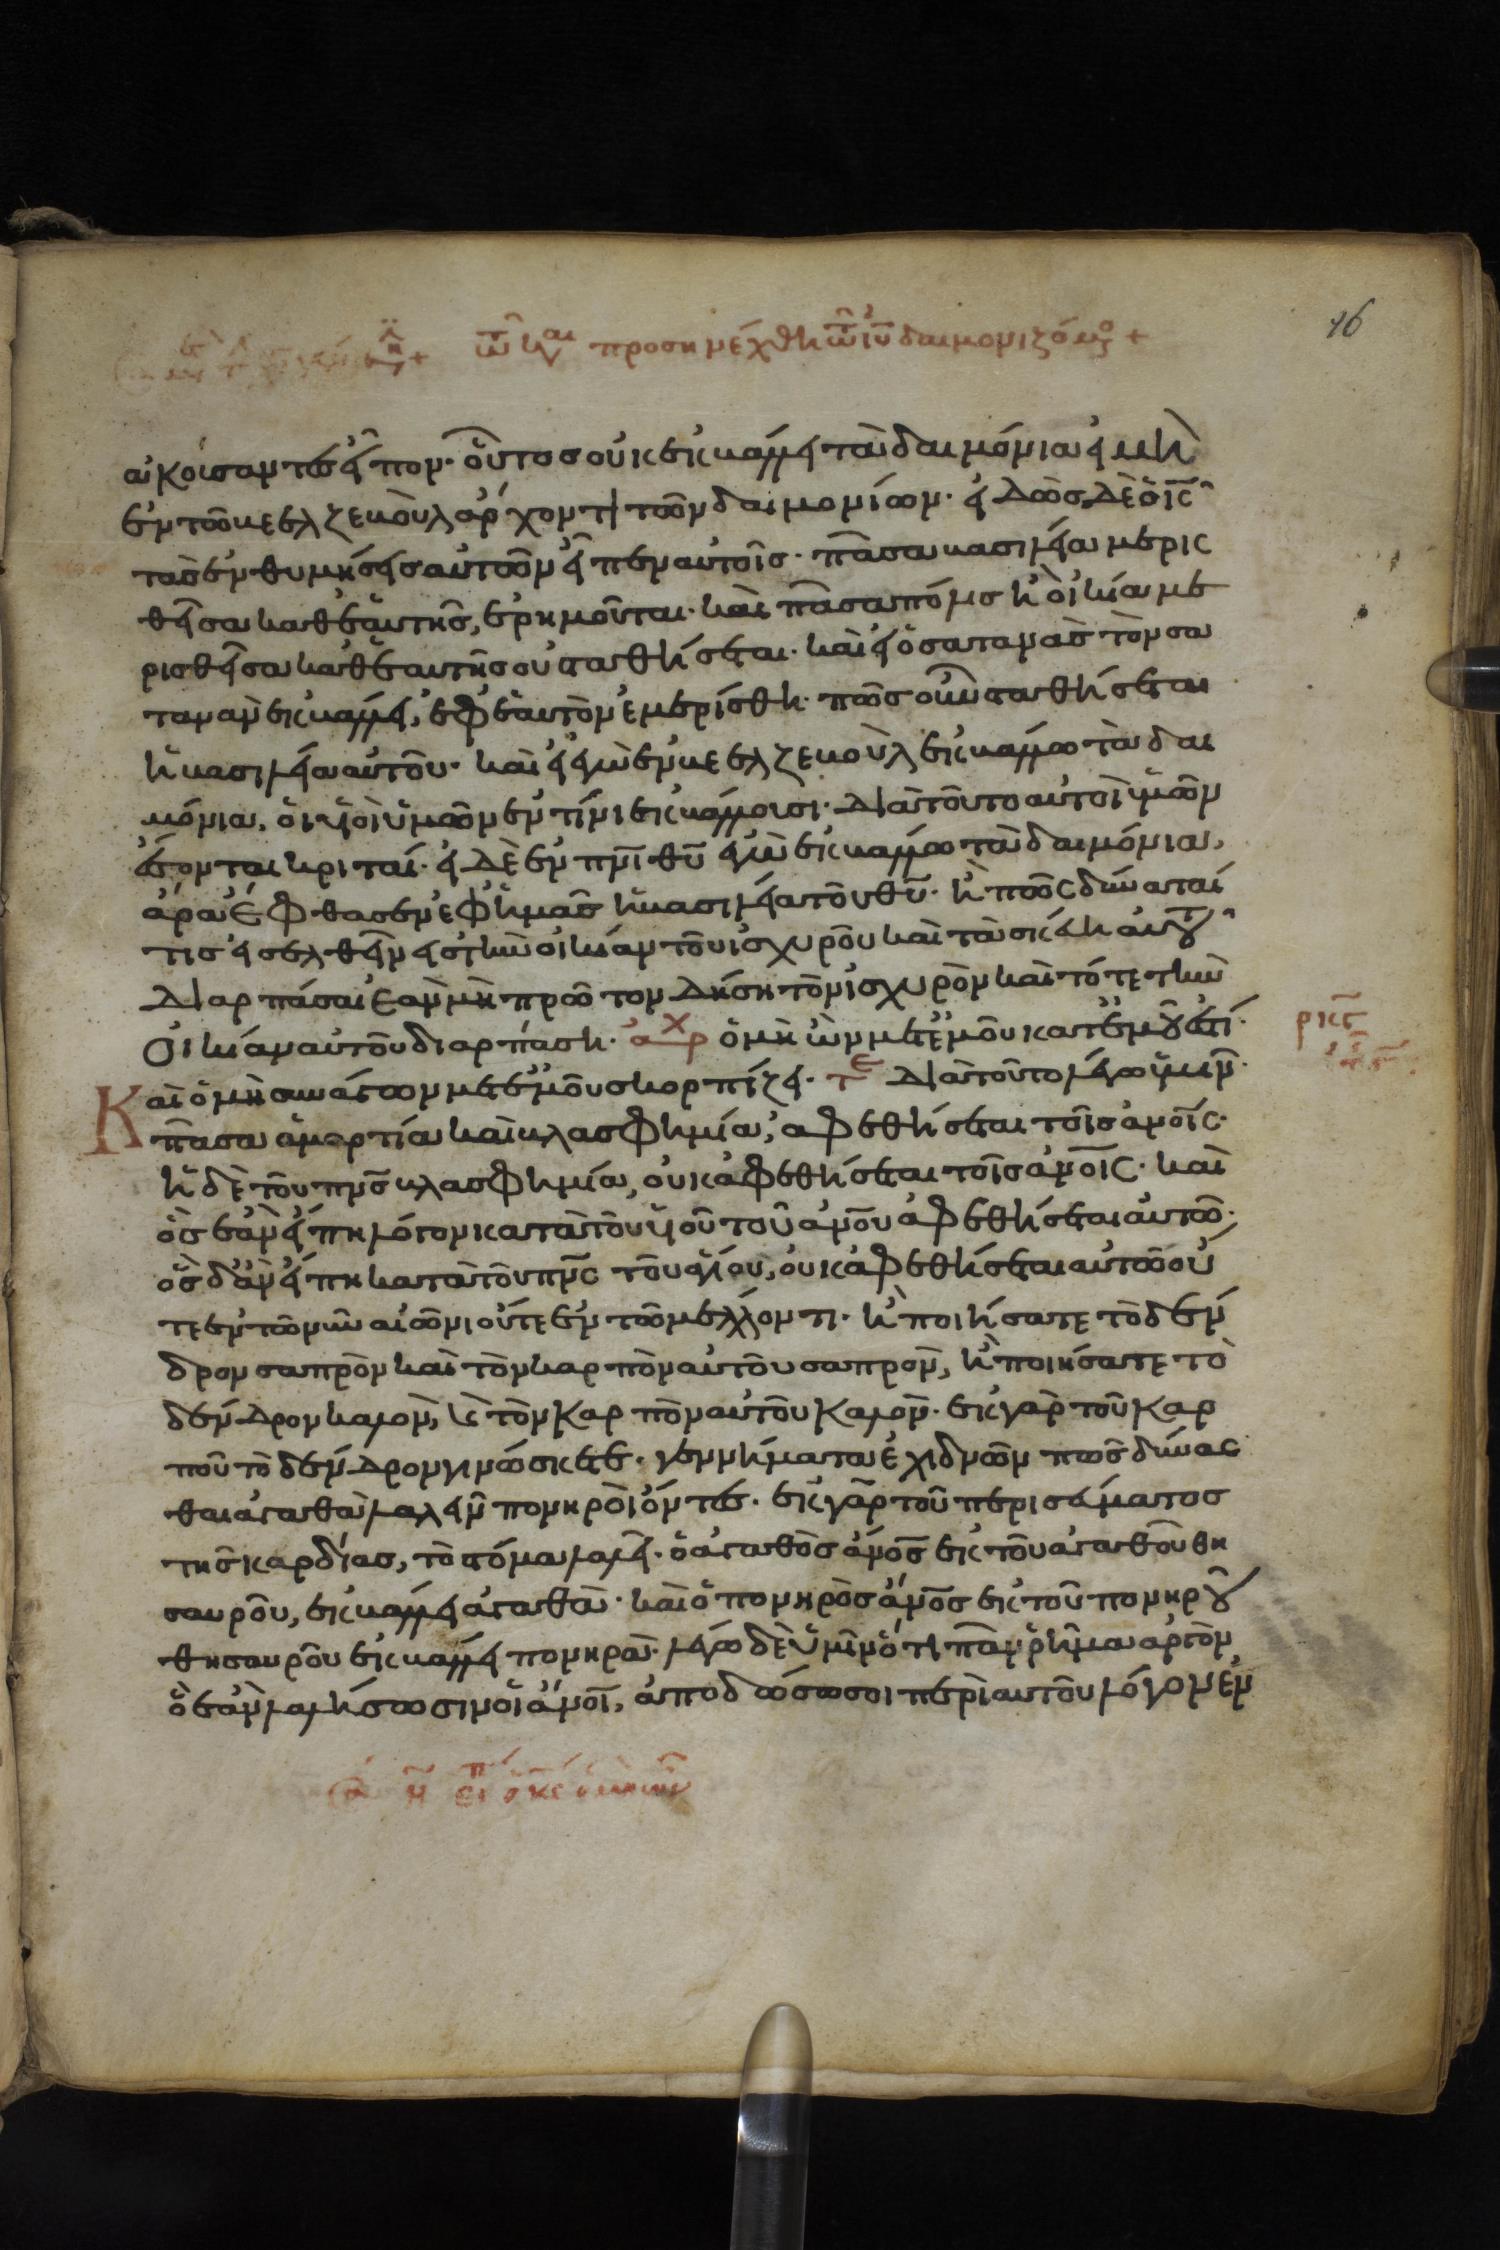 τῶ καιρῶ προσηνέχθη τῶ ιυ δαιμονιζόμενος +
16
ἀκούσαντες εἶπον· οὗτος οὐκ ἐκβάλλει τὰ δαιμόνια εἰ μὴ
ἐν τῶ βεελζεβοὺλ ἄρχοντι τῶν δαιμονίων· εἰδὼς δὲ ὁ ις
τὰς ἐνθυμήσεις αὐτῶν εἶπεν αὐτοῖς· πᾶσα βασιλεία μερισ
θεῖσα καθ' ἑαυτῆς, ἐρημοῦται· καὶ πᾶσα πόλις ἢ οἰκία με
ρισθεῖσα καθ' ἑαυτῆς οὐ σταθήσεται· καὶ εἰ ὁ σατανᾶς τὸν σα
τανᾶν ἐκβάλλει, ἐφ' ἑαυτὸν ἐμερίσθη· πῶς οὖν σταθήσεται
ἡ βασιλεία αὐτοῦ· καὶ εἰ ἐγὼ ἐν βεελζεβοὺλ ἐκβάλλω τὰ δαι
μόνια, οἱ υἱοὶ ὑμῶν ἐν τίνι ἐκβάλλουσι· διὰ τοῦτο αὐτοὶ ὑμῶν
ἔσονται κριταί· εἰ δὲ ἐν πνι θυ ἐγὼ ἐκβάλλω τὰ δαιμόνια,
ἄρα ἔφθασεν ἐφ' ἡμᾶς ἡ βασιλεία τοῦ θυ· ἢ πῶς δύναταί
τις εἰσελθεῖν εἰς τὴν οἰκίαν τοῦ ἰσχυροῦ καὶ τὰ σκεύη αὐτοῦ
διαρπάσαι ἐὰν μὴ πρῶτον δήσῃ τὸν ἰσχυρὸν καὶ τότε τὴν
οἰκίαν αὐτοῦ διαρπάσῃ· αρχ ὁ μὴ ὢν μετ' ἐμοῦ κατ' ἐμοῦ ἐστί·
ρκϛ
Καὶ ὁ μὴ συνάγων μετ' ἐμοῦ σκορπίζει· τε διὰ τοῦτο λέγω ὑμῖν·
πᾶσα ἁμαρτία καὶ βλασφημία, ἀφεθήσεται τοῖς ανοις·
ἡ δὲ τοῦ πνς βλασφημία, οὐκ ἀφεθήσεται τοῖς ανοις· καὶ
ὃς ἐὰν εἴπῃ λόγον κατὰ τοῦ υἱοῦ τοῦ ανου ἀφεθήσεται αὐτῶ·
ὃς δ' ἂν εἴπῃ κατὰ τοῦ πνς τοῦ ἁγίου, οὐκ ἀφεθήσεται αὐτῶ οὔ
τε ἐν τῶ νῦν αἰῶνι οὔτε ἐν τῶ μέλλοντι· ἢ ποιήσατε τὸ δέν
δρον σαπρὸν καὶ τὸν καρπὸν αὐτοῦ σαπρόν, ἢ ποιήσατε τὸ
δένδρον καλόν, καὶ τὸν καρπὸν αὐτοῦ καλόν· ἐκ γὰρ τοῦ καρ
ποῦ τὸ δένδρον γινώσκεται· γεννήματα ἐχιδνῶν πῶς δύνασ
θαι ἀγαθὰ λαλεῖν πονηροὶ ὄντες· ἐκ γὰρ τοῦ περισσεύματος
τῆς καρδίας, τὸ στόμα λαλεῖ· ὁ ἀγαθὸς ανος ἐκ τοῦ ἀγαθοῦ θη
σαυροῦ, ἐκβάλλει ἀγαθά· καὶ ὁ πονηρὸς ανος ἐκ τοῦ πονηροῦ
θησαυροῦ ἐκβάλλει πονηρά· λέγω δὲ ὑμῖν ὅτι πᾶν ῥῆμα ἀργὸν
ὃ ἐὰν λαλήσωσιν οἱ ανοι, ἀποδώσωσι περὶ αὐτοῦ λόγον ἐν